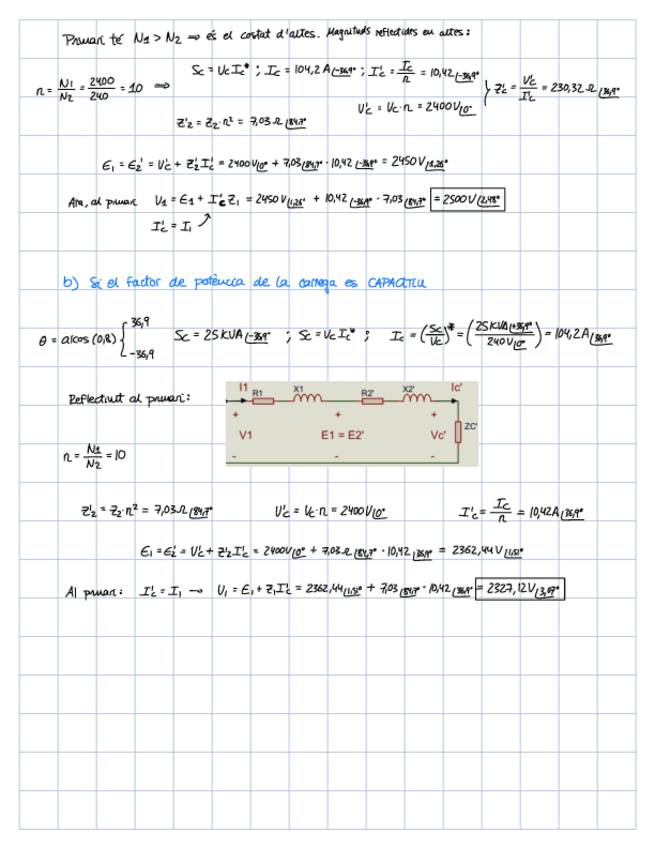 Primari té N1 > N2 ⇒ és el costat d'altes. Magnituds reflectides en altes:
n = N1/N2 = 2400/240 = 10 ⇒ Sc = Uc Ic* ; Ic = 104,2 A∠-36,9° ; I'c = Ic/n = 10,42∠-36,9° } Z'c = U'c/I'c = 230,32 Ω∠36,9°
Z'2 = Z2·n² = 7,03 Ω∠84,7° U'c = Uc·n = 2400V∠0°
E1 = E2' = U'c + Z'2 I'c = 2400V∠0° + 7,03∠84,7° · 10,42∠-36,9° = 2450V∠1,26°
Ara, al primari U1 = E1 + I'c Z1 = 2450V∠1,26° + 10,42∠-36,9° · 7,03∠84,7° = 2500V∠2,48°
I'c = I1
b) Si el factor de potència de la carrega es CAPACITIU
θ = arcos(0,8) { 36,9 -36,9 Sc = 25KVA∠-36,9° ; Sc = Uc Ic* ; Ic = (Sc/Uc)* = (25KVA∠+36,9°/240V∠0°) = 104,2A∠36,9°
Reflectint al primari:
I1 R1 X1 R2' X2' Ic'
+ + +
V1 E1 = E2' Vc' ZC'
- - -
n = N1/N2 = 10
Z'2 = Z2·n² = 7,03Ω∠84,7° U'c = Uc·n = 2400V∠0° I'c = Ic/n = 10,42A∠36,9°
E1 = E2' = U'c + Z'2 I'c = 2400V∠0° + 7,03Ω∠84,7° · 10,42∠36,9° = 2362,44V∠1,51°
Al primari: I'c = I1 → U1 = E1 + Z1 I'c = 2362,44∠1,51° + 7,03∠84,7° · 10,42∠36,9° = 2327,12V∠3,07°